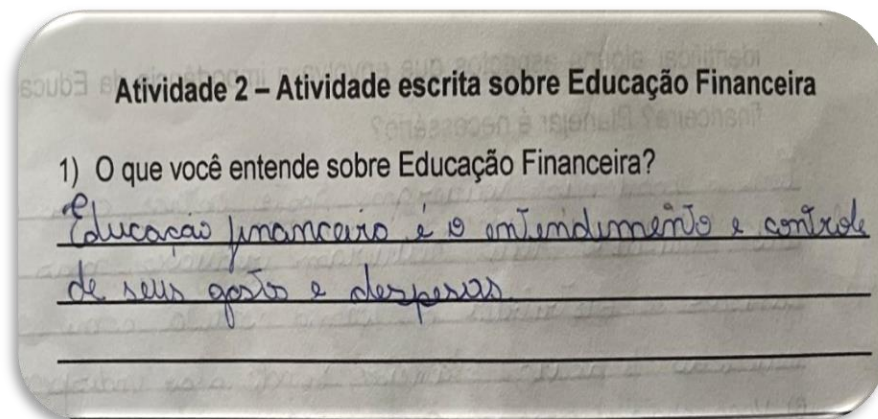 Atividade 2 – Atividade escrita sobre Educação Financeira
1) O que você entende sobre Educação Financeira?
Educação financeira é o entendimento e controle
de seus gastos e despesas